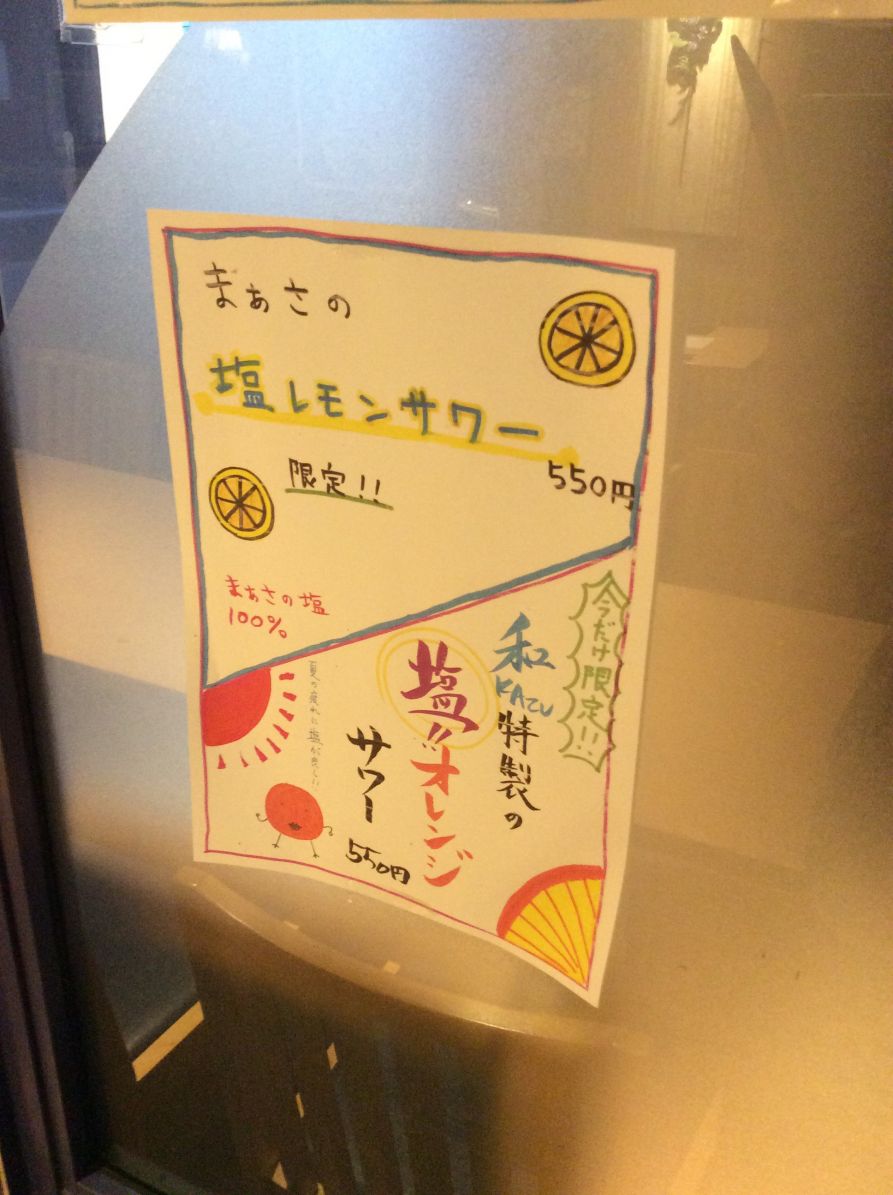 まぁさの
塩レモンサワー
550円
限定!!
まぁさの塩
100%
今だけ限定!!
和
KAZU
特製の
塩!!オレンジ
サワー
550円
夏の疲れに塩が良い!